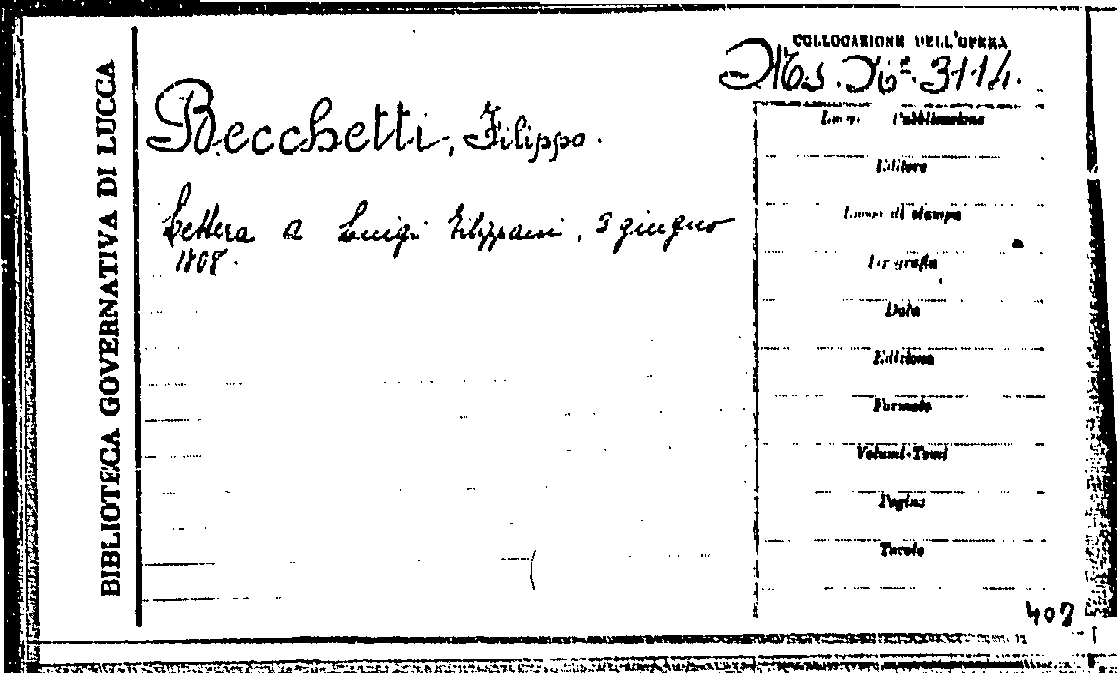 BIBLIOTECA GOVERNATIVA DI LUCCA
COLLOCAZIONE DELL'OPERA
Ms. N.º 3114.
Becchetti, Filippo.
Lettera a Luigi giugno
1808.
Pubblicazione
Editore
Luogo di stampa
Tipografia
Data
Edizione
Formato
Volumi-Tomi
Pagine
Tavole